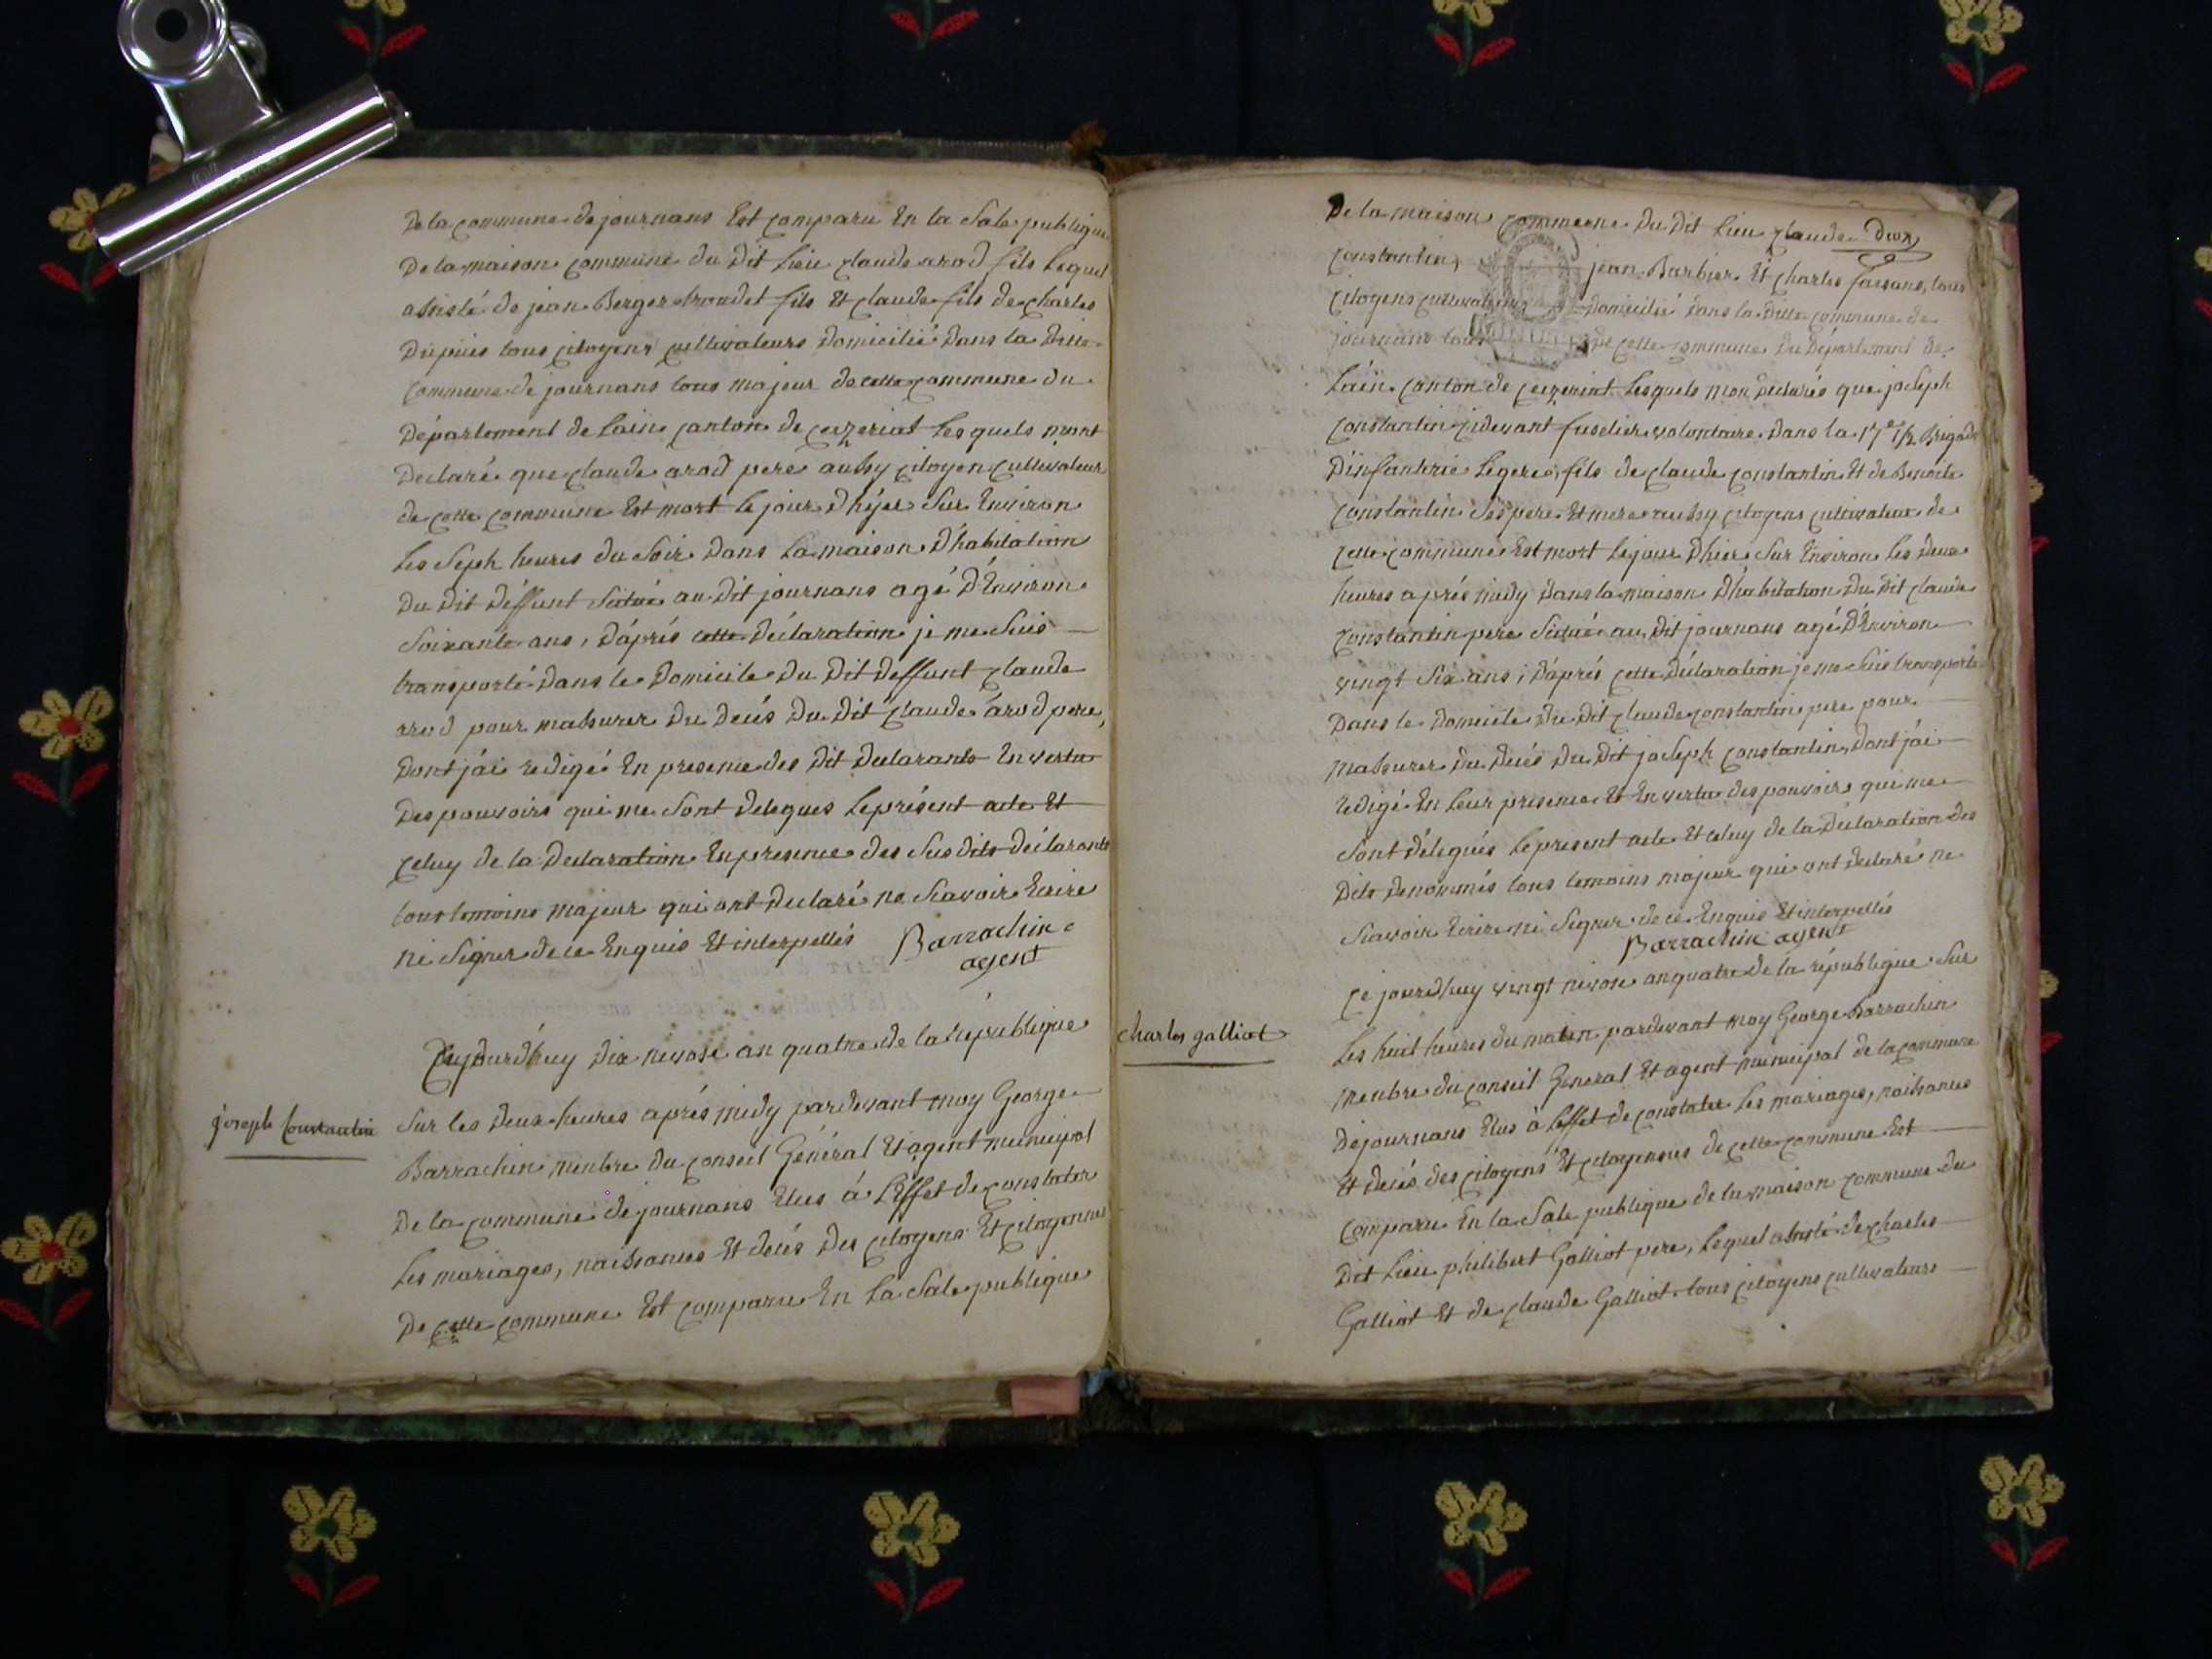 De la commune de journans Est comparu En la Sale publique
De la maison commune du Dit Lieu claude arod fils Lequel
assisté de jean Berger trondet fils Et claude fils de charles
Dupuis tous citoyens cultivateurs Domicilié Dans la Ditte
commune de journans tous majeur de cette commune du
Département de Lain canton de ceyzeriat Lesquels mont
Declaré que claude arod pere aussy citoyen cultivateur
de cette commune Est mort le jour D'hyer Sur Environ
Les Seph heures du Soir Dans La maison D'habitation
Du Dit Deffunt Scitué au Dit journans agé D'Environ
Soixante ans, D'aprés cette Déclaration je me Suis
transporté Dans le Domicile Du Dit Deffunt claude
arod pour massurer Du Decés Du Dit claude arod pere,
Dont j'ai redigé En presence des Dit Declarants En vertu
Des pouvoirs qui me Sont Delegues Le présent acte Et
celuy de la Declaration En presence des Sus dits déclarants
tous temoins majeur qui ont Declaré ne Scavoir Ecrire
ni Signer de ce Enquis Et interpellés Barrachin
agent
Cejourd'huy Dix nivose an quatre de la République
joseph Constantin
Sur les Deux heures aprés midy pardevant moy George
Barrachin menbre du conseil Général Et agent municipal
De la commune de journans Elus á L'Effet de constater
Les mariages, naissances Et decés Des citoyens Et citoyennes
De cette commune Est comparu En La Sale publique
De la maison commune Du Dit Lieu claude Deux
constantin, jean Barbier Et charles faisans, tous
citoyens cultivateurs Domicilié Dans la Ditte commune de
journans tous de cette commune Du Département de
Laïn canton de ceyzeriat Lesquels mon Declarés que joseph
constantin cidevant fuselier volontaire Dans la 17e 1/2 Brigade
D'infanterie Legere, fils de claude constantin Et de Benoite
constantin Ses pere Et mere aussy citoyens cultivateur de
cette commune Est mort Le jour D'hier Sur Environ Les Deux
heures aprés midy Dans la maison D'habitation Du Dit claude
constantin pere Scitué au Dit journans agé D'Environ
vingt Six ans ; D'aprés cette Déclaration je me Suis transporté
Dans le Domicile Du Dit claude constantin pere pour
massurer Du Decés Du Dit joseph constantin, Dont j'ai
redigé En Leur presence Et En vertu des pouvoirs qui me
Sont Délegués Le present acte Et celuy de la Declaration des
Dits Denommés tous temoins majeur qui ont Declaré ne
Scavoir Ecrire ni Signer de ce Enquis Et interpellés
Barrachin agent
Ce jourd'huy vingt nivose an quatre de la république Sur
charles galliot
Les huit heures du matin pardevant moy George Barrachin
menbre du conseil Général Et agent municipal de la commune
De journans Elus à L'effet de constater Les mariages, naissances
Et decés des citoyens Et citoyennes de cette commune Est
comparu En la Sale publique de la maison commune du
Dit Lieu philibert Galliot pere, Lequel assisté de charles
Galliot Et de claude Galliot tous citoyens cultivateurs